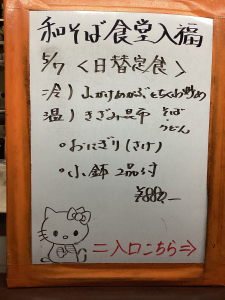 和そば食堂入福
5/7 〈日替定食〉
冷) 山かけめかぶとちくわ炒め
温) きざみ昆布 そば・うどん
・おにぎり(さけ)
・小鉢2品付
=入口こちら⇒